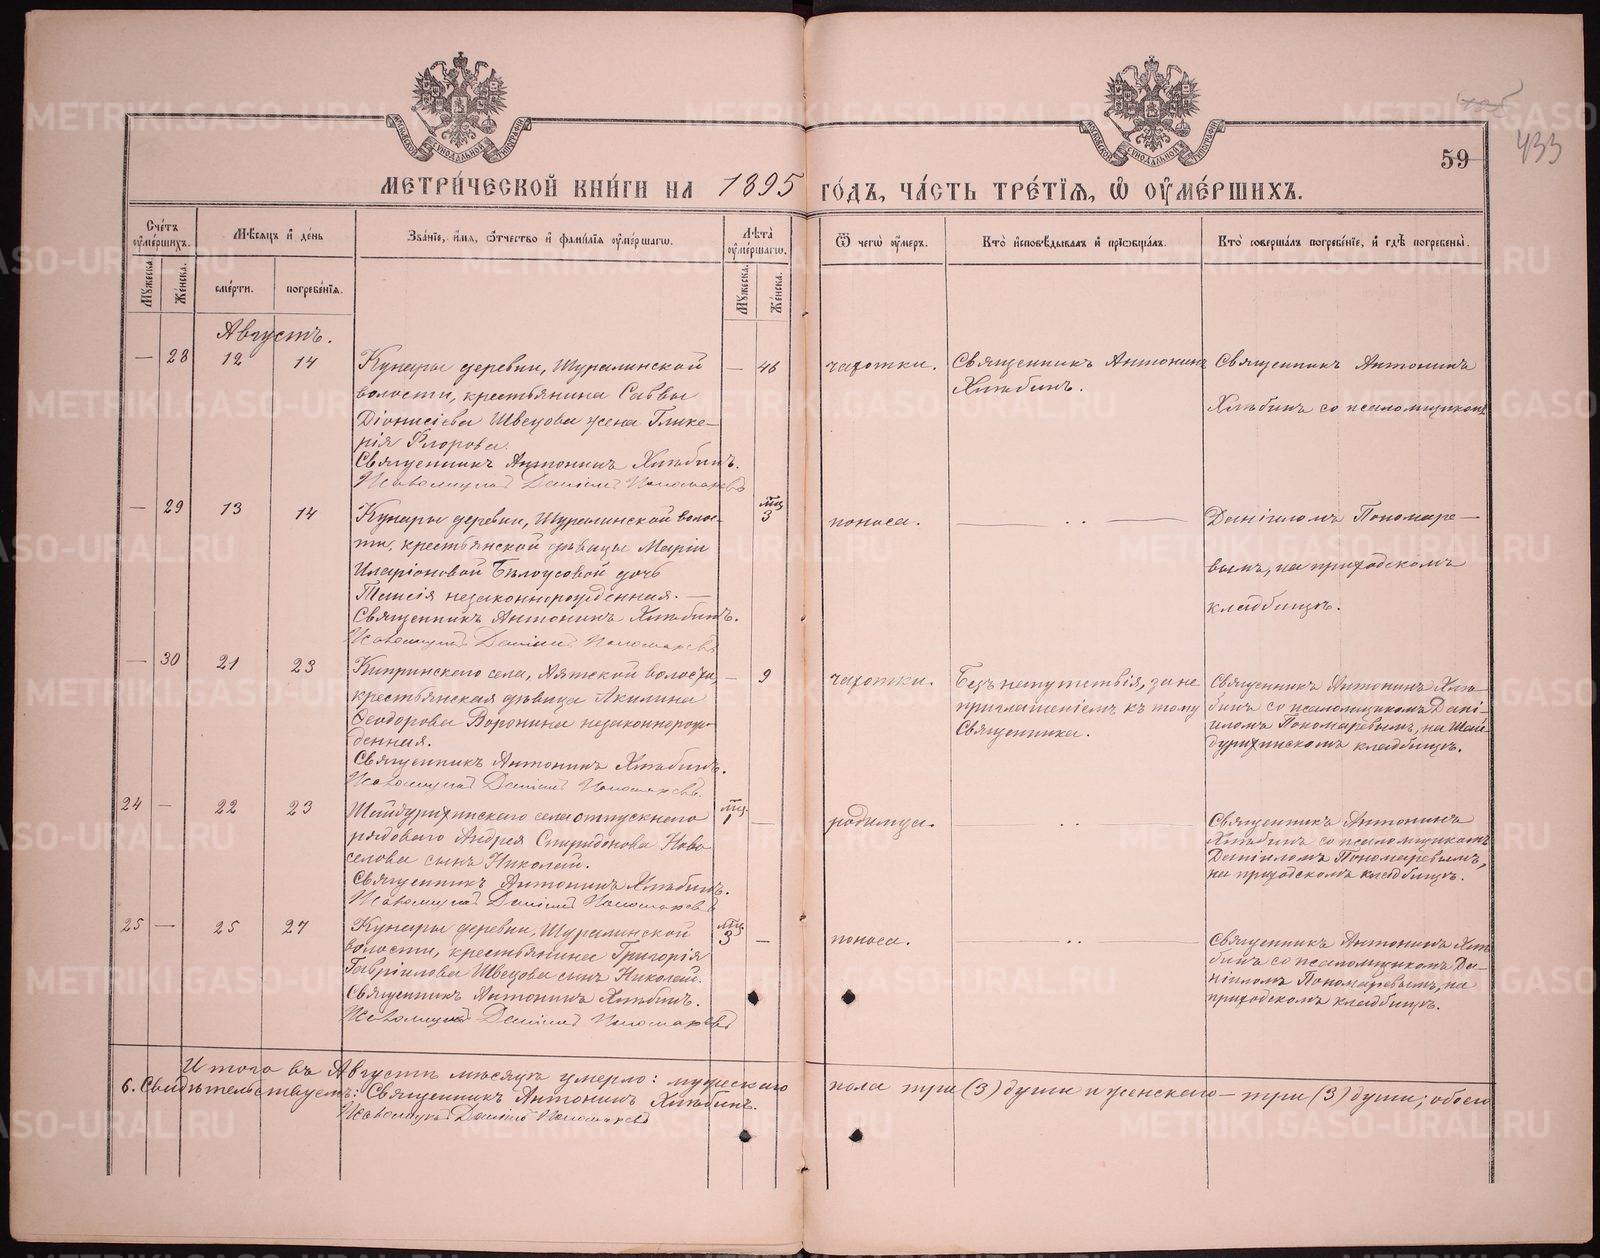 МОСКОВСКОЙ СѴНОДАЛЬНОЙ ТИПОГРАФІИ
МОСКОВСКОЙ СѴНОДАЛЬНОЙ ТИПОГРАФІИ
59
433
МЕТРИ́ЧЕСКОЙ КНИ́ГИ НА 1895 ГО́ДЪ, ЧА́СТЬ ТРЕ́ТІѦ, Ѡ ОУМЕ́РШИХЪ.
Сче́тъ оуме́ршихъ.
Мѣ́сяцъ и де́нь
Зва́ніе, и́мѧ, ѻ́тчество и фами́лїѧ оуме́ршагѡ.
Лѣта̀ оуме́ршагѡ.
Ѿ чегѡ̀ оу́меръ.
Кто̀ исповѣ́дывалъ и прїѡбща́лъ.
Кто̀ соверша́лъ погребе́нїе, и гдѣ̀ погребены̀.
Мꙋ́жеска.
Же́нска.
сме́рти.
погребе́нїѧ.
Мꙋ́жеска.
Же́нска.
Августъ.
— 28 12 14
Кунары деревни, Шуралинской
волости, крестьянина Саввы
Діонисіева Швецова жена Глике-
рія Флорова.
Священникъ Антонинъ Хлѣбинъ.
Псаломщикъ Даніилъ Пономаревъ
— 46
чахотки.
Священникъ Антонинъ
Хлѣбинъ.
Священникъ Антонинъ
Хлѣбинъ со псаломщикомъ
— 29 13 14
Кунары деревни, Шуралинской волос-
ти, крестьянской дѣвицы Маріи
Иларіоновой Бѣлоусовой дочь
Таисія незаконнорожденная. —
Священникъ Антонинъ Хлѣбинъ.
Псаломщикъ Даніилъ Пономаревъ
мц. 3
поноса.
— . . —
Даніиломъ Пономаре-
вымъ, на приходскомъ
кладбищѣ.
— 30 21 23
Кипринскаго села, Аятской волости,
крестьянская дѣвица Акилина
Ѳеодорова Воронина незаконнорож-
денная.
Священникъ Антонинъ Хлѣбинъ.
Псаломщикъ Даніилъ Пономаревъ.
— 9
чахотки.
Безъ напутствія, за не
приглашеніемъ къ тому
Священника.
Священникъ Антонинъ Хлѣ-
бинъ со псаломщикомъ Дані-
иломъ Пономаревымъ, на Шай-
дурихинскомъ кладбищѣ.
24 — 22 23
Шайдурихинскаго села отпускнаго
рядоваго Андрея Спиридонова Ново
селова сынъ Николай.
Священникъ Антонинъ Хлѣбинъ.
Псаломщикъ Даніилъ Пономаревъ
мц. 1 —
родимца.
— . . —
Священникъ Антонинъ
Хлѣбинъ со псаломщикомъ
Даніиломъ Пономаревымъ,
на приходскомъ кладбищѣ.
25 — 25 27
Кунары деревни, Шуралинской
волости, крестьянина Григорія
Гавріилова Швецова сынъ Николай.
Священникъ Антонинъ Хлѣбинъ.
Псаломщикъ Даніилъ Пономаревъ
мц. 3 —
поноса.
— . . —
Священникъ Антонинъ Хлѣ-
бинъ со псаломщикомъ Да-
ніиломъ Пономаревымъ, на
приходскомъ кладбищѣ.
Итого въ Августѣ мѣсяцѣ умерло: мужескаго пола три (3) души и женскаго — три (3) души; обоего
6. Свидѣтельствуемъ: Священникъ Антонинъ Хлѣбинъ.
Псаломщикъ Даніилъ Пономаревъ
METRIKI.GASO-URAL.RU